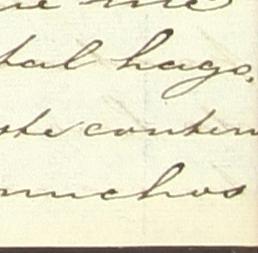 me
tal hago,
ste conten
muchos